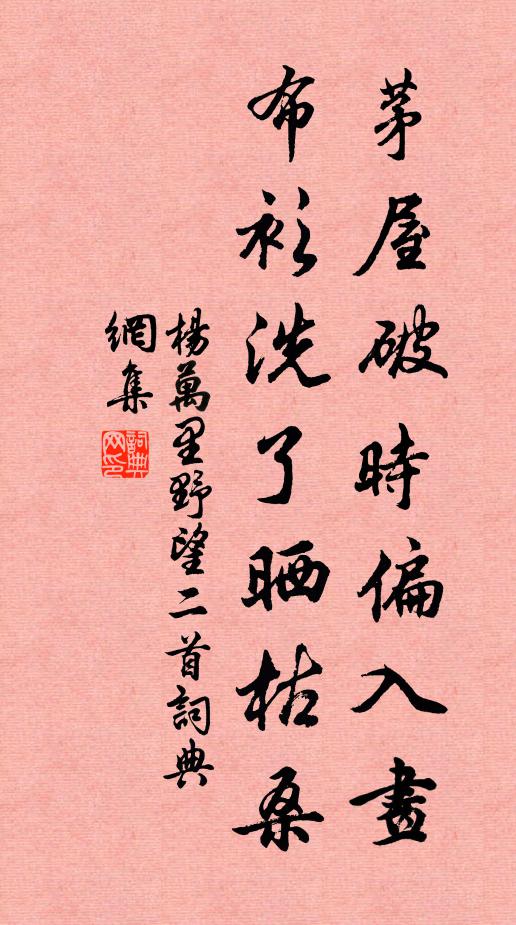 茅屋破時偏入畫
布衫洗了晒枯桑
楊萬里野望二首詞典
網集
詞典
网印